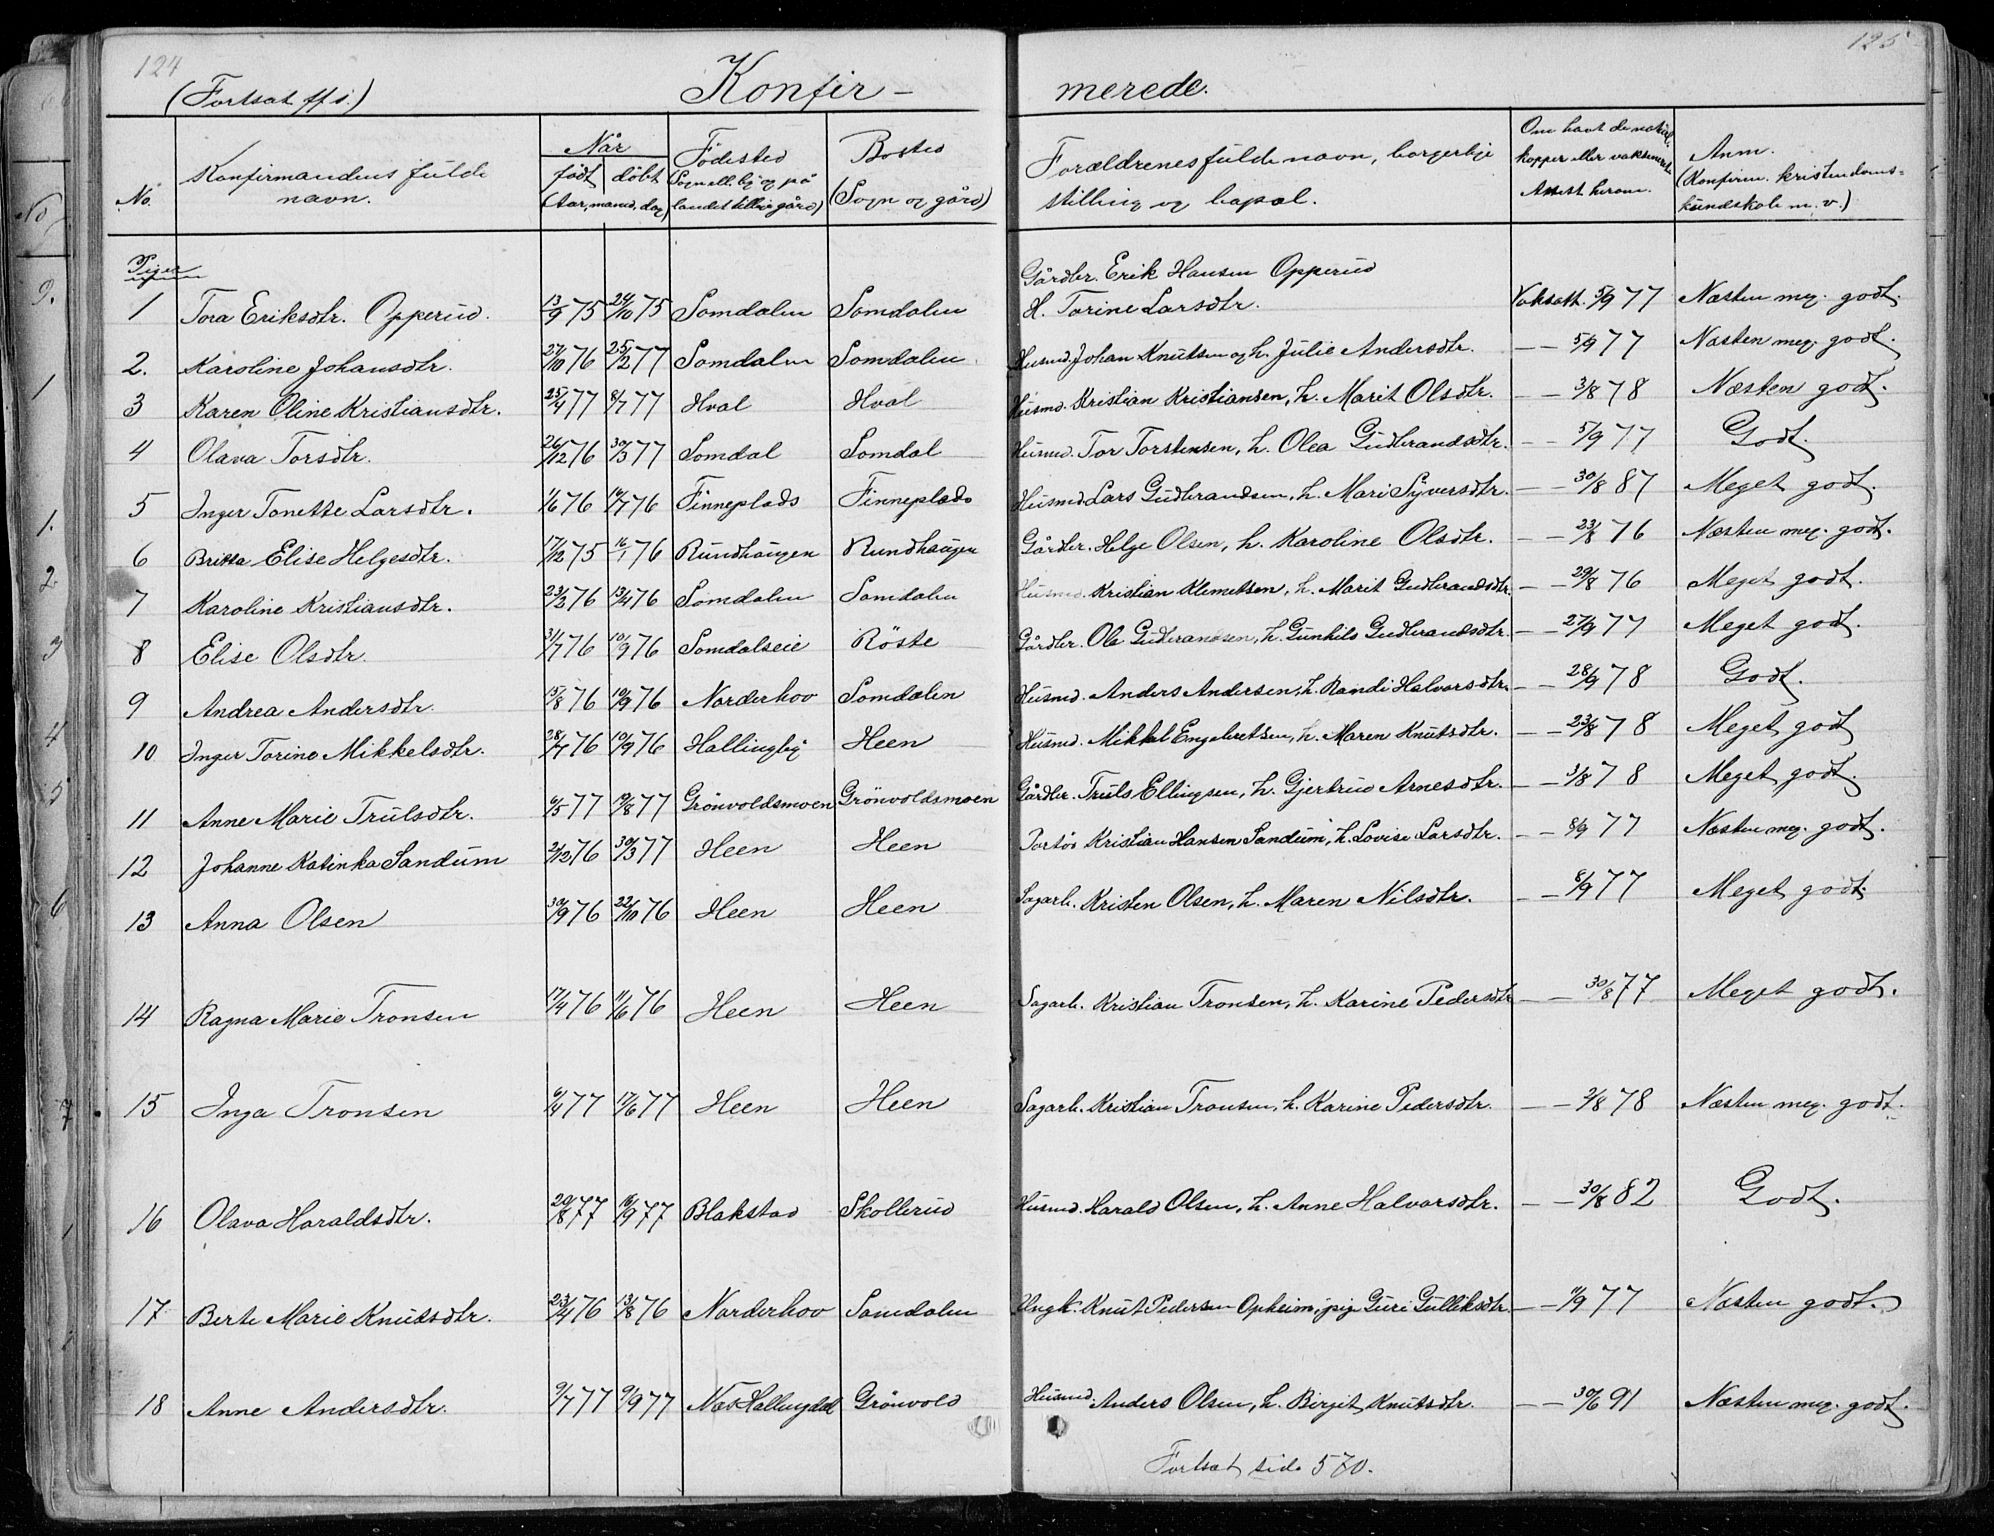 124
125
(Fortsat ff s.)
Konfir-
merede.
No.
Konfirmandens fulde
navn.
Når
født
døbt
(Aar, maned, dag)
Fødested
Sogn ell. by og på
landet tillige gård)
Bosted
(Sogn og gård)
Forældrenes fulde navn, borgerlige
stilling og bopæl.
Om havt de naturl.
kopper eller vaksineret.
Attest herom.
Anm.
(Konfirm. kristendoms-
kundskab m. v.)
Piger
Gårdbr. Erik Hansen Opperud
1 Tora Eriksdtr. Opperud. 13/9 75 24/10 75 Somdalen Somdalen H. Torine Larsdtr. Vaksatt. 5/9 77 Næsten meg. godt.
2. Karoline Johansdtr. 27/10 76 25/2 77 Somdalen Somdalen Husmd. Johan Knutsen og h. Julie Andersdtr. — — 5/9 77 Næsten meg. godt.
3 Karen Oline Kristiansdtr. 25/4 77 8/7 77 Hval Hval Husmd. Kristian Kristiansen, h. Marit Olsdtr. — — 3/8 78 Næsten godt.
4 Olava Torsdtr. 26/12 76 30/3 77 Somdal Somdal Husmd. Tor Torstensen, h. Olea Gudbrandsdtr. — — 5/9 77 Godt.
5 Inger Tonette Larsdtr. 1/6 76 16/7 76 Finneplads Finneplads Husmd Lars Gudbrandsen, h. Mari Syversdtr. — — 30/8 87 Meget godt.
6 Britta Elise Helgesdtr. 17/12 75 16/1 76 Rundhaugen Rundhaugen Gårdbr. Helge Olsen, h. Karoline Olsdtr. — — 23/8 76 Næsten meg. godt.
7 Karoline Kristiansdtr. 23/2 76 13/4 76 Somdalen Somdalen Husmd. Kristian Klemetsen, h. Marit Gudbrandsdtr. — — 29/8 76 Meget godt.
8 Elise Olsdtr. 31/7 76 10/9 76 Somdalseie Röste Gårdbr. Ole Gudbrandsen, h. Gunhild Gudbrandsdtr. — — 27/9 77 Meget godt.
9 Andrea Andersdtr. 15/8 76 10/9 76 Norderhov Somdalen Husmd. Anders Andersen, h. Randi Halvorsdtr. — — 28/9 78 Godt.
10 Inger Torine Mikkelsdtr. 28/7 76 10/9 76 Hallingby Heen Husmd. Mikkel Engebretsen, h. Maren Knutsdtr. — — 23/8 78 Meget godt
11 Anne Marie Trulsdtr. 6/5 77 19/8 77 Grönvoldsmoen Grönvoldsmoen Gårdbr. Truls Ellingsen, h. Gjertrud Arnesdtr. — — 3/8 78 Meget godt.
12 Johanne Katinka Sandum 2/12 76 30/3 77 Heen Heen Kristian Hansen Sandum, h. Lovise Larsdtr. — — 8/9 77 Næsten meg. godt.
13 Anna Olsen 30/9 76 22/10 76 Heen Heen Sagarb. Kristen Olsen, h. Maren Nilsdtr. — — 8/9 77 Meget godt.
14 Ragna Marie Tronsen 17/4 76 11/6 76 Heen Heen Sagarb. Kristian Tronsen, h. Karine Pedersdtr — — 30/8 77 Meget godt.
15 Inga Tronsen 6/4 77 17/6 77 Heen Heen Sagarb. Kristian Tronsen, h. Karine Pedersdtr. — — 3/8 78 Næsten meg. godt.
16 Olava Haraldsdtr. 20/8 77 16/9 77 Blakstad Skollerud Husmd. Harald Olsen, h. Anne Halvorsdtr. — — 30/8 82 Godt.
17 Berte Marie Knudsdtr. 23/4 76 13/8 76 Norderhov Somdalen Ungk. Knut Pedersen Opheim, pig Guri Gulliksdtr. — — 11/9 77 Næsten godt.
18 Anne Andersdtr. 9/7 77 9/9 77 Næs Hallingdal Grönvold Husmd. Anders Olsen, h. Birgit Knutsdtr. — — 30/6 91 Næsten meg. godt.
Fortsat side 570.